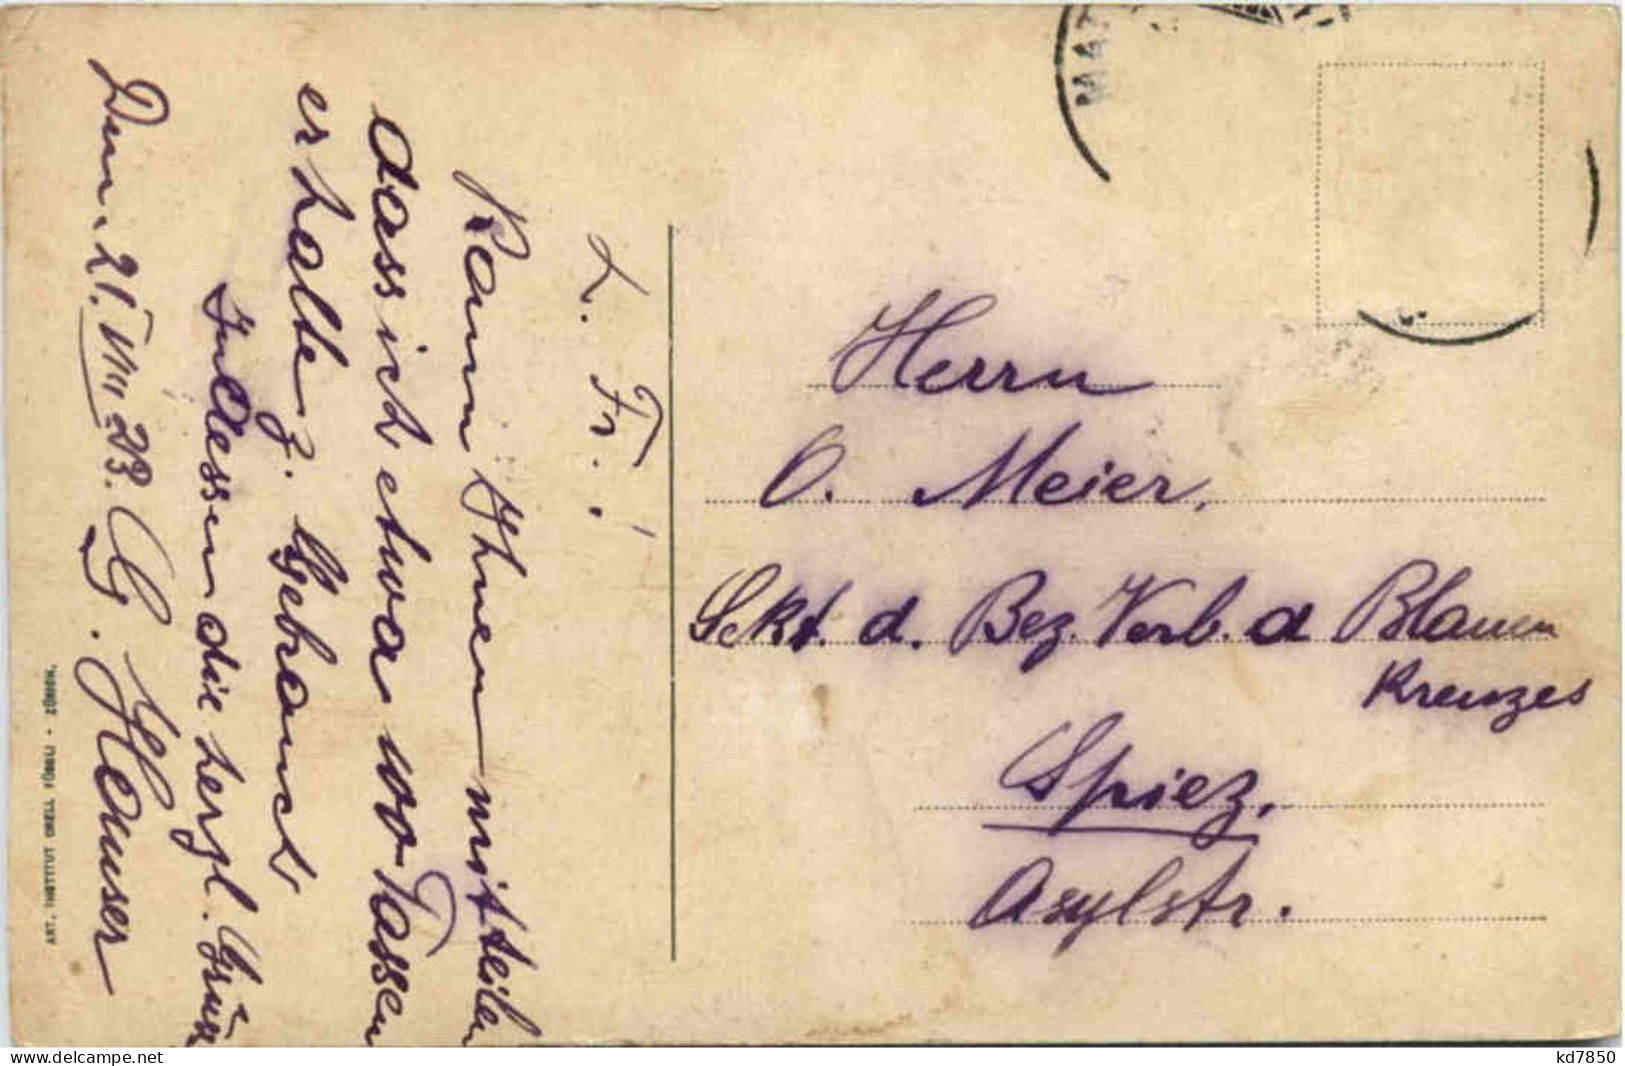 L. Fr.!
Kann Ihnen mitteilen
dass ich etwa 100 Tassen
erhalte z. Gebrauch
Indessen die herzl. Grüsse
21. VIII 23. G. Hauser
ART. INSTITUT ORELL FÜSSLI - ZÜRICH.
MAT
Herrn
O. Meier,
Sekt. d. Bez. Verb. d Blauen
Kreuzes
Spiez,
Asylstr.
delcampe.net
kd7850